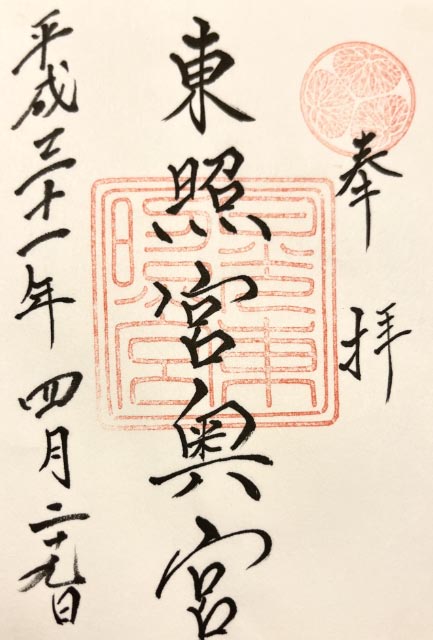 奉拝
東照宮奥宮
平成三十一年四月二十九日